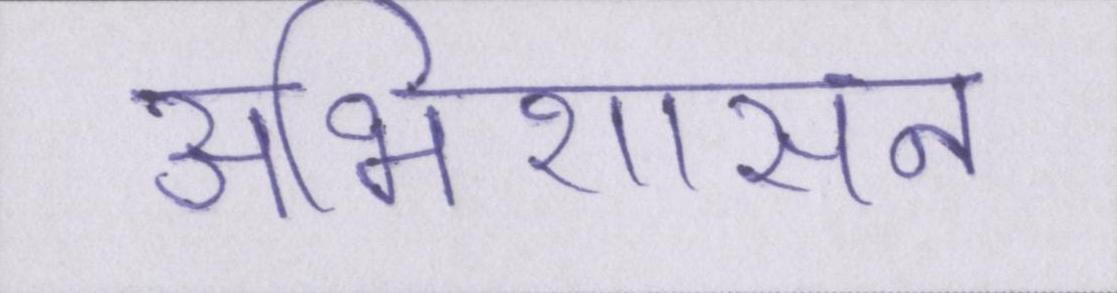 अभिशासन